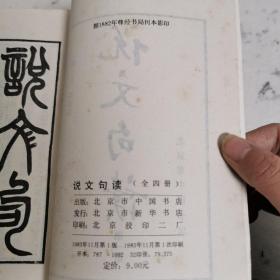 說文句
据1882年尊经书局刊本影印
说文句读（全四册）
出版：北京市中国书店
发行：北京市新华书店
印刷：北京胶印二厂
1983年11月第1版 1983年11月第1次印刷
开本：787×1092 32开 印张：79.375
定价：9.00元